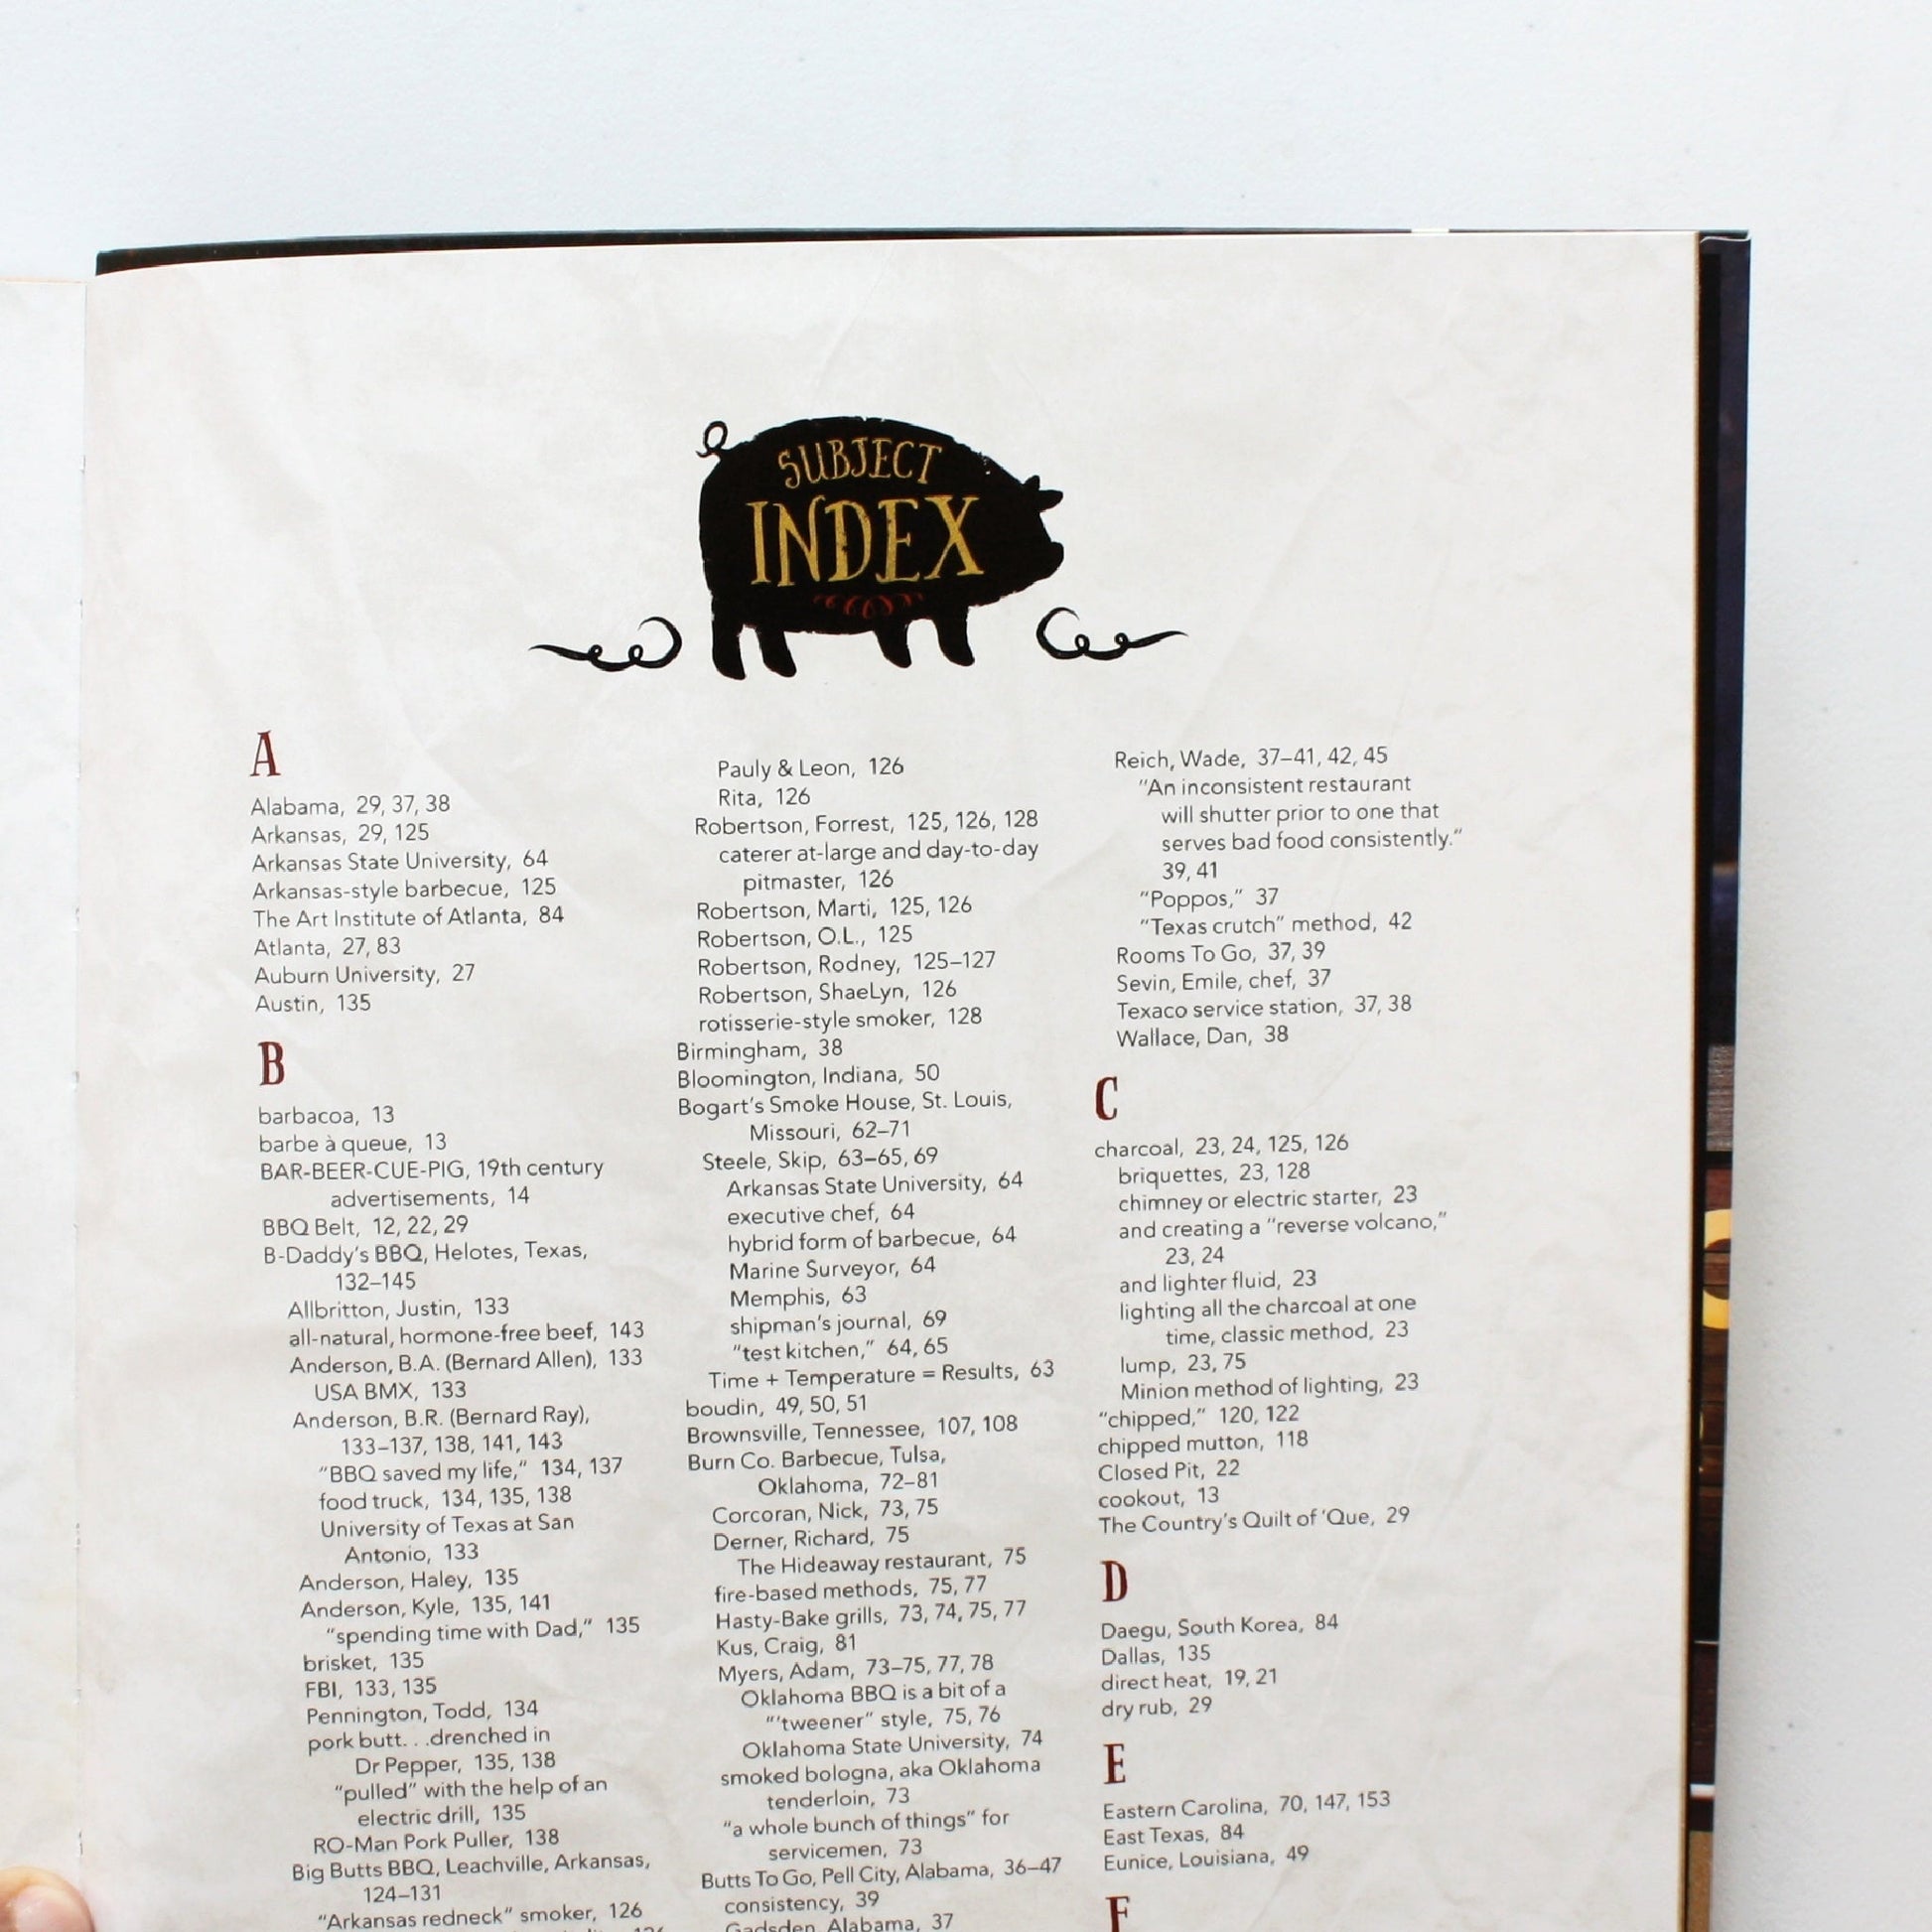 SUBJECT
INDEX
A
Alabama, 29, 37, 38
Arkansas, 29, 125
Arkansas State University, 64
Arkansas-style barbecue, 125
The Art Institute of Atlanta, 84
Atlanta, 27, 83
Auburn University, 27
Austin, 135
B
barbacoa, 13
barbe à queue, 13
BAR-BEER-CUE-PIG, 19th century
advertisements, 14
BBQ Belt, 12, 22, 29
B-Daddy's BBQ, Helotes, Texas,
132–145
Allbritton, Justin, 133
all-natural, hormone-free beef, 143
Anderson, B.A. (Bernard Allen), 133
USA BMX, 133
Anderson, B.R. (Bernard Ray),
133–137, 138, 141, 143
"BBQ saved my life," 134, 137
food truck, 134, 135, 138
University of Texas at San
Antonio, 133
Anderson, Haley, 135
Anderson, Kyle, 135, 141
"spending time with Dad," 135
brisket, 135
FBI, 133, 135
Pennington, Todd, 134
pork butt. . .drenched in
Dr Pepper, 135, 138
"pulled" with the help of an
electric drill, 135
RO-Man Pork Puller, 138
Big Butts BBQ, Leachville, Arkansas,
124–131
"Arkansas redneck" smoker, 126
Pauly & Leon, 126
Rita, 126
Robertson, Forrest, 125, 126, 128
caterer at-large and day-to-day
pitmaster, 126
Robertson, Marti, 125, 126
Robertson, O.L., 125
Robertson, Rodney, 125–127
Robertson, ShaeLyn, 126
rotisserie-style smoker, 128
Birmingham, 38
Bloomington, Indiana, 50
Bogart's Smoke House, St. Louis,
Missouri, 62–71
Steele, Skip, 63–65, 69
Arkansas State University, 64
executive chef, 64
hybrid form of barbecue, 64
Marine Surveyor, 64
Memphis, 63
shipman's journal, 69
"test kitchen," 64, 65
Time + Temperature = Results, 63
boudin, 49, 50, 51
Brownsville, Tennessee, 107, 108
Burn Co. Barbecue, Tulsa,
Oklahoma, 72–81
Corcoran, Nick, 73, 75
Derner, Richard, 75
The Hideaway restaurant, 75
fire-based methods, 75, 77
Hasty-Bake grills, 73, 74, 75, 77
Kus, Craig, 81
Myers, Adam, 73–75, 77, 78
Oklahoma BBQ is a bit of a
"'tweener" style, 75, 76
Oklahoma State University, 74
smoked bologna, aka Oklahoma
tenderloin, 73
"a whole bunch of things" for
servicemen, 73
Butts To Go, Pell City, Alabama, 36–47
consistency, 39
Gadsden, Alabama, 37
Reich, Wade, 37–41, 42, 45
"An inconsistent restaurant
will shutter prior to one that
serves bad food consistently."
39, 41
"Poppos," 37
"Texas crutch" method, 42
Rooms To Go, 37, 39
Sevin, Emile, chef, 37
Texaco service station, 37, 38
Wallace, Dan, 38
C
charcoal, 23, 24, 125, 126
briquettes, 23, 128
chimney or electric starter, 23
and creating a "reverse volcano,"
23, 24
and lighter fluid, 23
lighting all the charcoal at one
time, classic method, 23
lump, 23, 75
Minion method of lighting, 23
"chipped," 120, 122
chipped mutton, 118
Closed Pit, 22
cookout, 13
The Country's Quilt of 'Que, 29
D
Daegu, South Korea, 84
Dallas, 135
direct heat, 19, 21
dry rub, 29
E
Eastern Carolina, 70, 147, 153
East Texas, 84
Eunice, Louisiana, 49
F